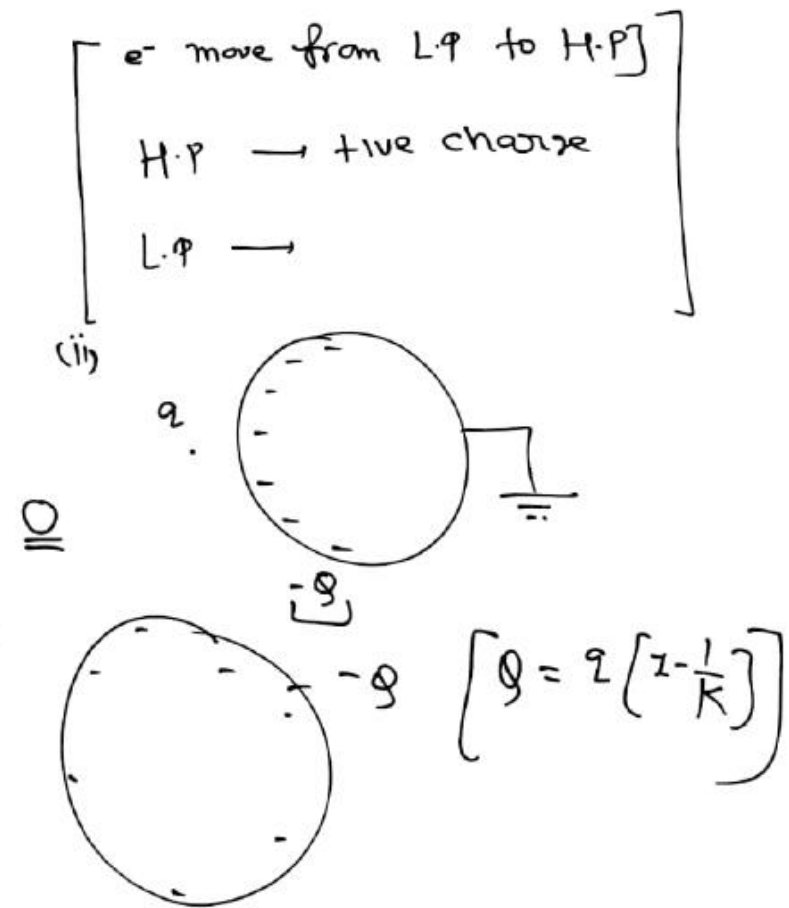 [ e⁻ move from L.P to H.P]
H.P → +ive charge
L.P → ]
(ii)
q
-Q
-Q [Q = q(1-1/K)]